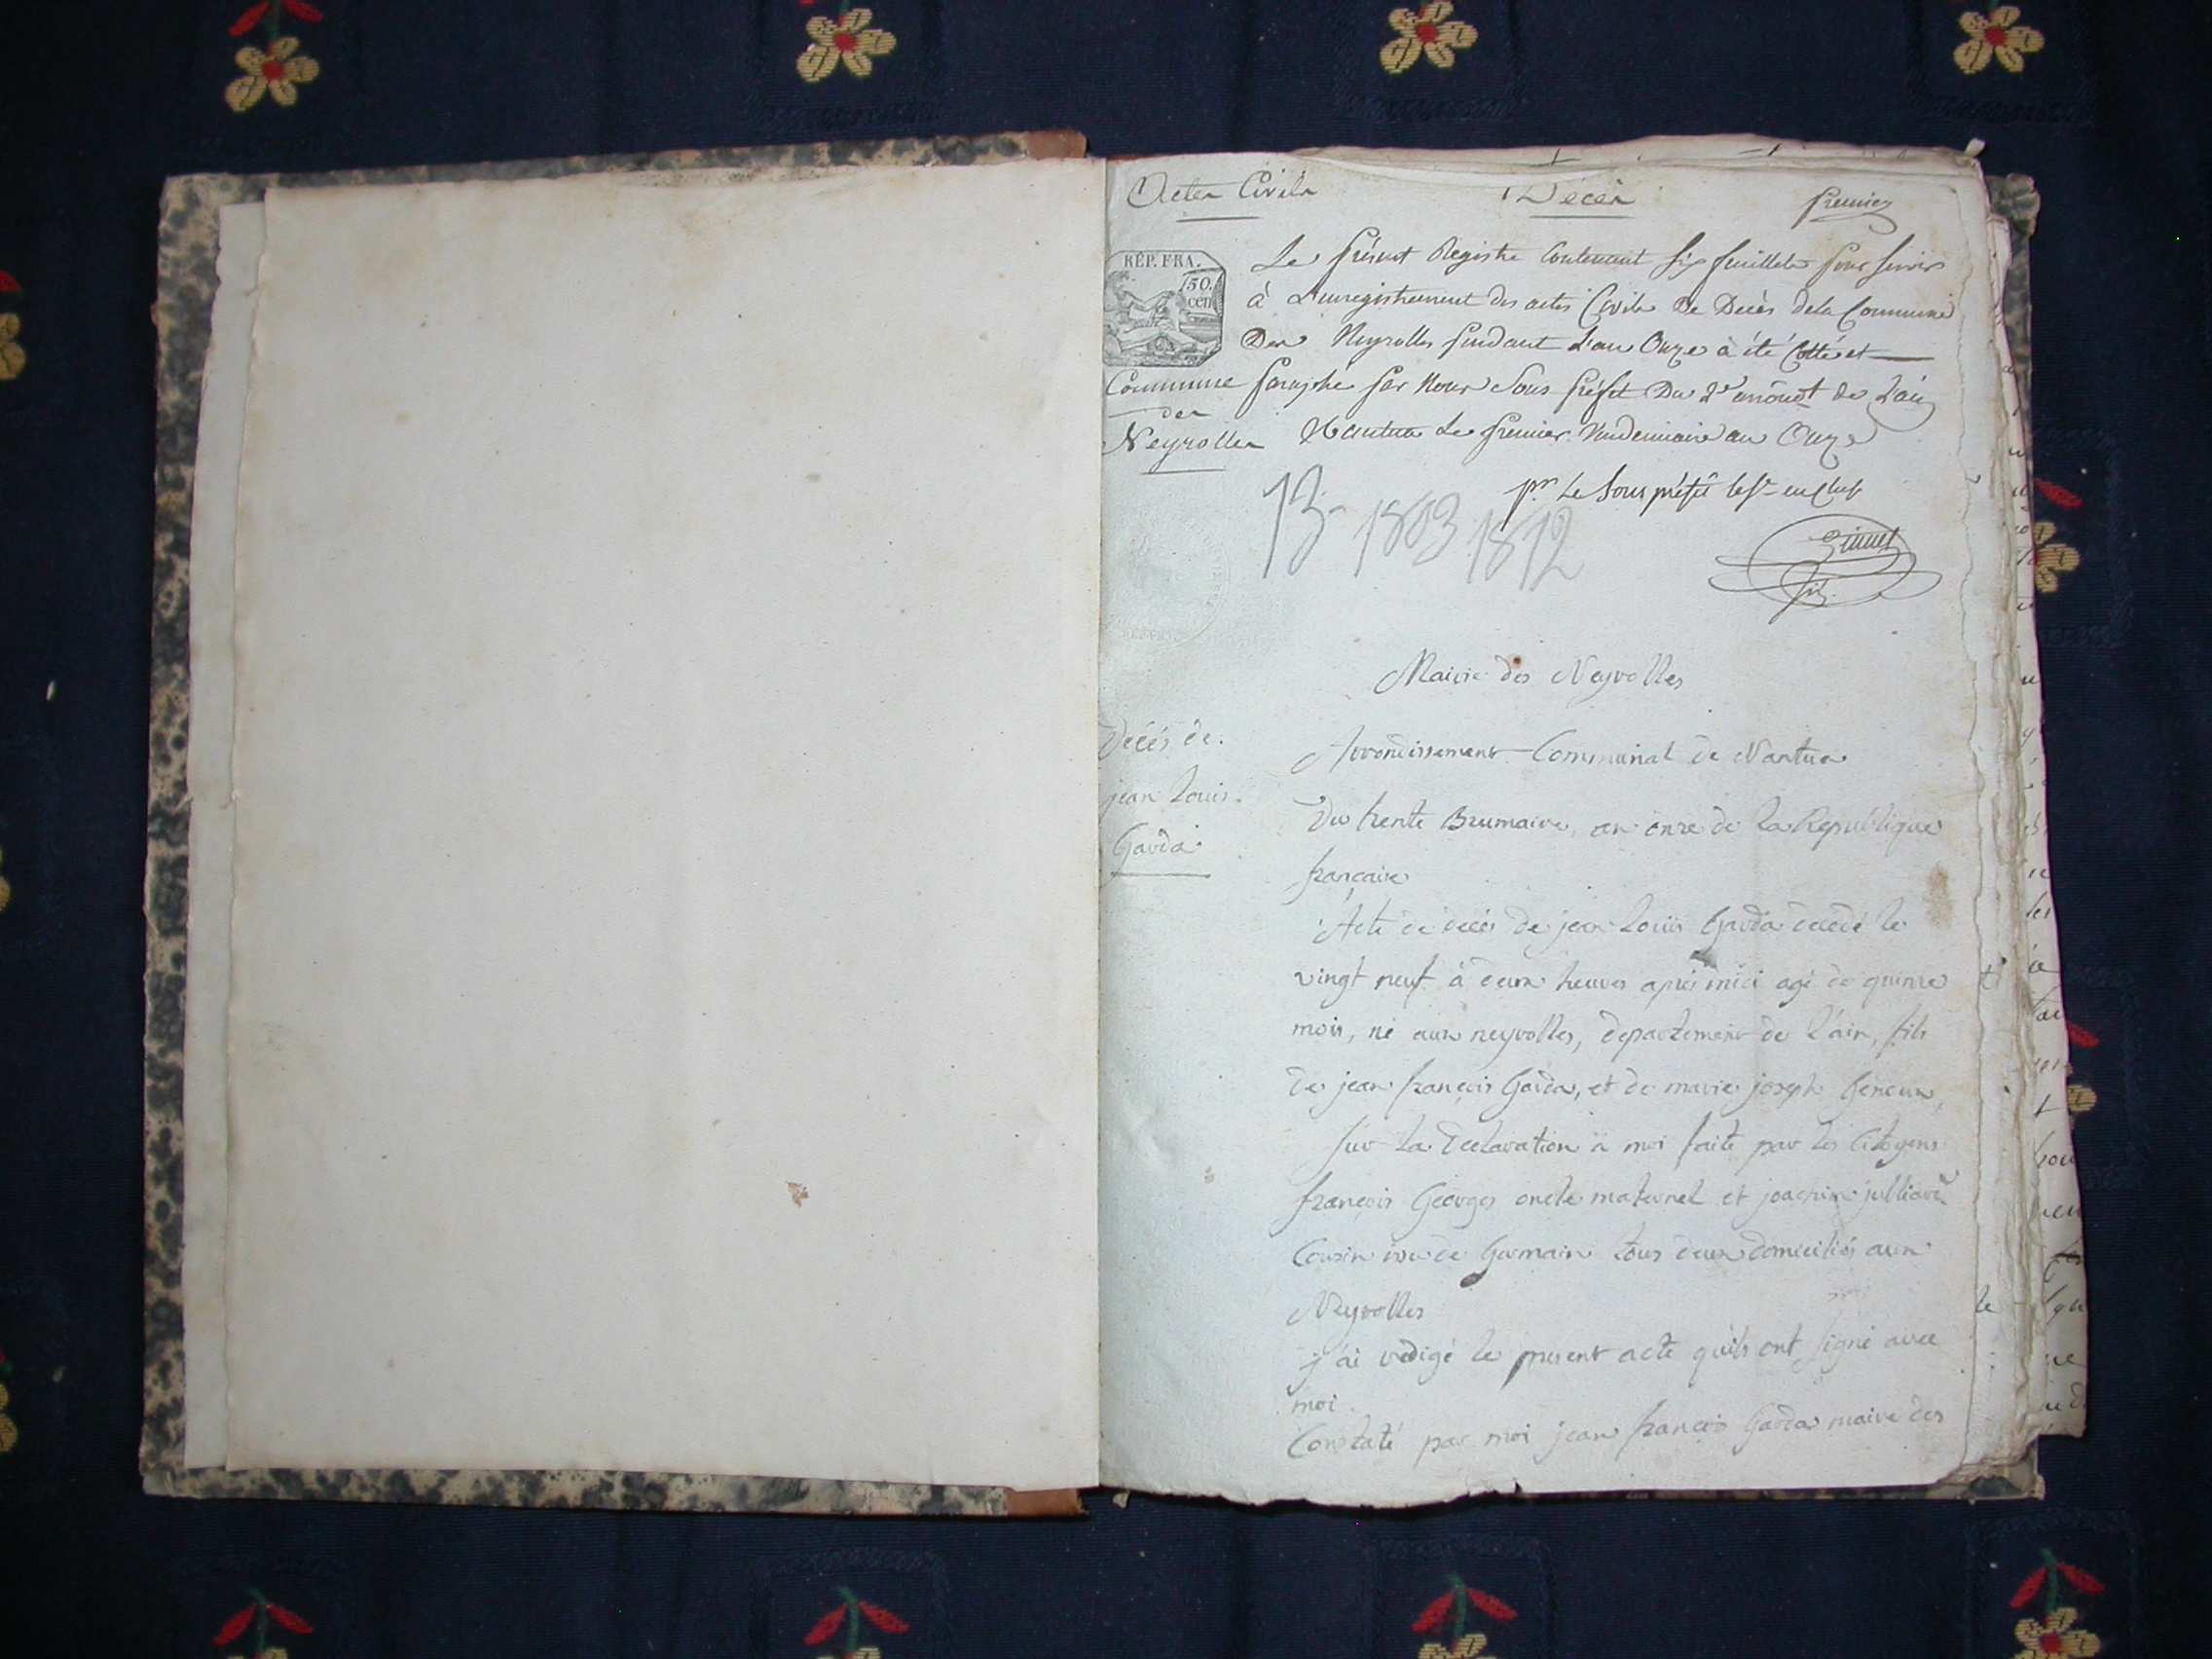 Actes Civils
Décès
premier
RÉP. FRA.
50.
cen
Le présent Registre Contenant six feuillets pour servir
à L'enregistrement des actes Civils De Décès dela Commune
Des Neyrolles pendant L'an Onze à été Cotté et
Commune
des
Neyrolles
paraphé par Nous Sous préfet Du 2e arrondt de L'ain
Nantua Le premier Vendemiaire an Onze
pr Le Sous préfet le Sre en Chef
13- 1803 1812
Mairie des Neyrolles
Décés de
jean Louis
Gavda
Arrondissement Communal de Nantua
Du trente Brumaire, an onze de la Republique
française
Acte de décés de jean Louis Gavda décédé le
vingt neuf à deux heures aprés midi agé de quinze
mois, né aux neyrolles, departement de l'ain, fils
de jean françois Gavda, et de marie joseph
Sur la declaration à moi faite par les Citoyens
françois Géorges oncle maternel et joachim julliard
Cousin de Germain tous deux domiciliés aux
Neyrolles
j'ai redigé le present acte qu'ils ont signé avec
moi.
Constaté par moi jean françois Gavda maire des